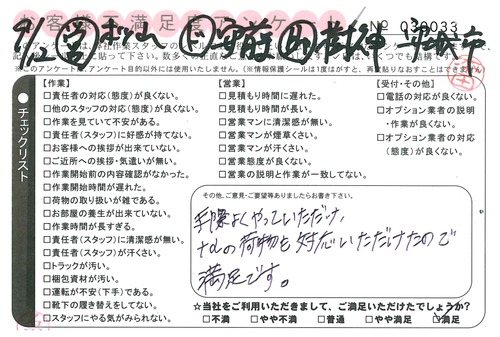 お客様不満足度アンケート
No 030033
9/12
このアンケートは、弊社作業スタッフの
※このアンケートは、アンケート目的以外には使用いたしません。(※情報保護シールは1度はがすと、再度貼りなおすことはできません)
チェックリスト
【作業】
□責任者の対応(態度)が良くない。
□他のスタッフの対応(態度)が良くない。
□作業を見ていて不安がある。
□責任者(スタッフ)に好感が持てない。
□お客様への挨拶が出来ていない。
□ご近所への挨拶・気遣いが無い。
□作業開始前の内容確認がなかった。
□作業開始時間が遅れた。
□荷物の取り扱いが雑である。
□お部屋の養生が出来ていない。
□作業時間が長すぎる。
□責任者(スタッフ)に清潔感が無い。
□責任者(スタッフ)が汗くさい。
□トラックが汚い。
□梱包資材が汚い。
□運転が不安(下手)である。
□靴下の履き替えをしてない。
□スタッフにやる気がみられない。
【営業】
□見積もり時間に遅れた。
□見積もり時間が長い。
□営業マンに清潔感が無い。
□営業マンが煙草くさい。
□営業マンが汗くさい。
□営業態度が良くない。
□営業の説明と作業が一致してない。
【受付・その他】
□電話の対応が良くない。
□オプション業者の説明
・作業が良くない。
□オプション業者の対応
(態度)が良くない。
その他、ご意見・ご要望等ありましたらお書き下さい。
手際よくやっていただけ、
の荷物も対応いただけたので
満足です。
☆当社をご利用いただきまして、ご満足いただけたでしょうか?
□不満 □やや不満 □普通 □やや満足 □満足